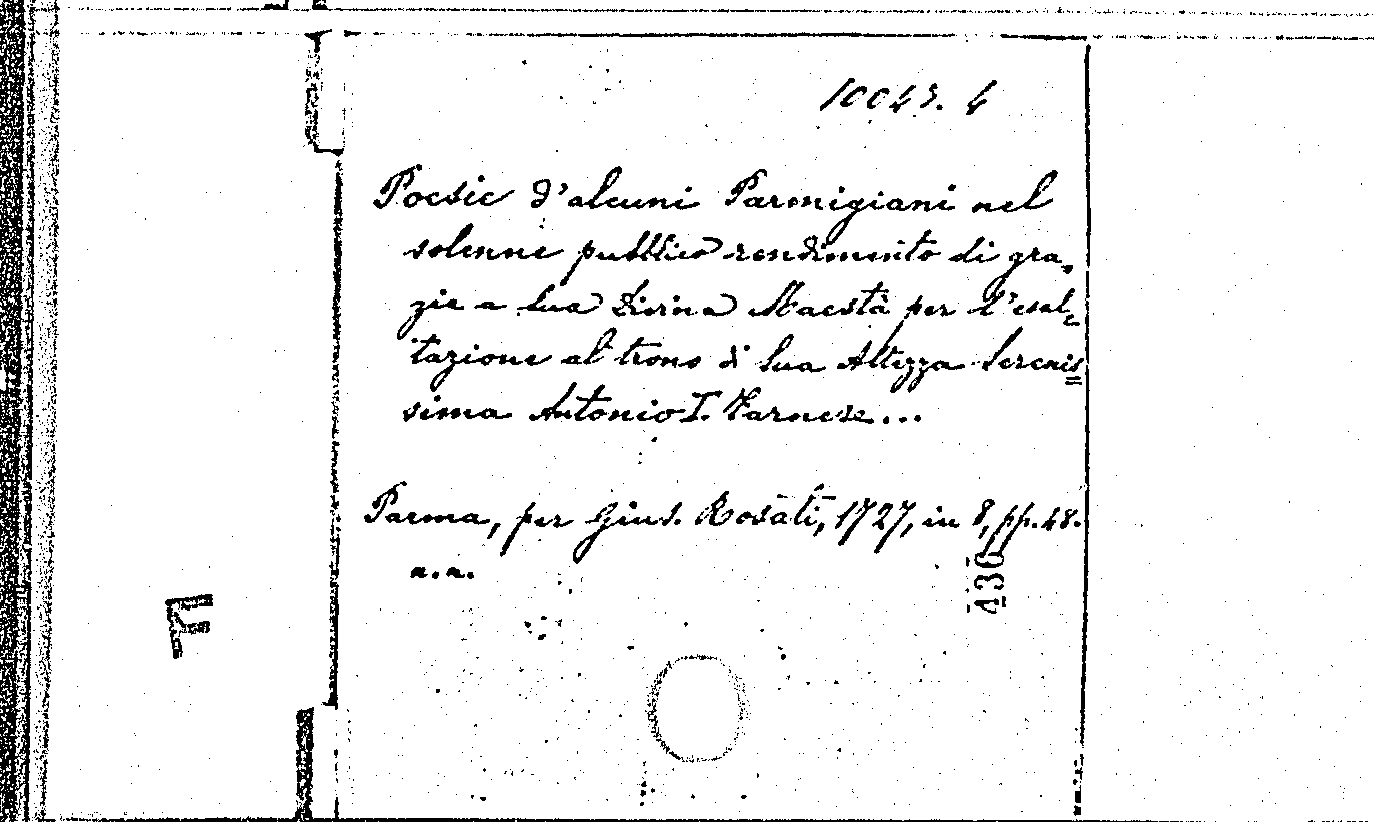 10043. 4
Poesie d'alcuni Parmigiani nel
solenne pubblico rendimento di gra-
zie a Sua Divina Maestà per l'esal-
tazione al trono di Sua Altezza Serenis
sima Antonio I. Farnese...
Parma, per Gius. Rosati, 1727, in 8, pp. 48.
n.n.
436
F